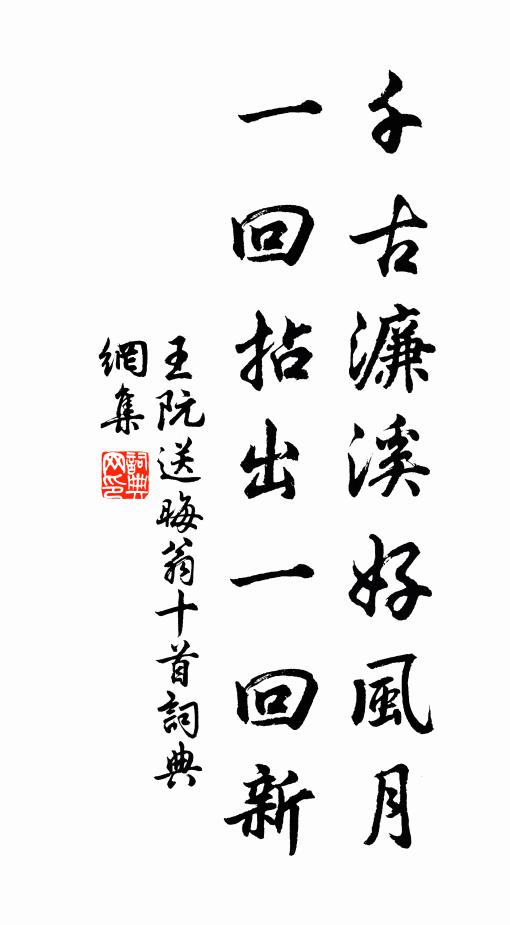 千古濂溪好風月
一回拈出一回新
王阮送晦翁十首詞典
網集
詞典網印